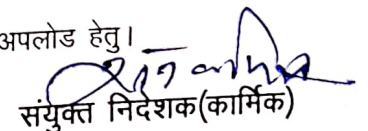 अपलोड हेतु।
संयुक्त निदेशक(कार्मिक)